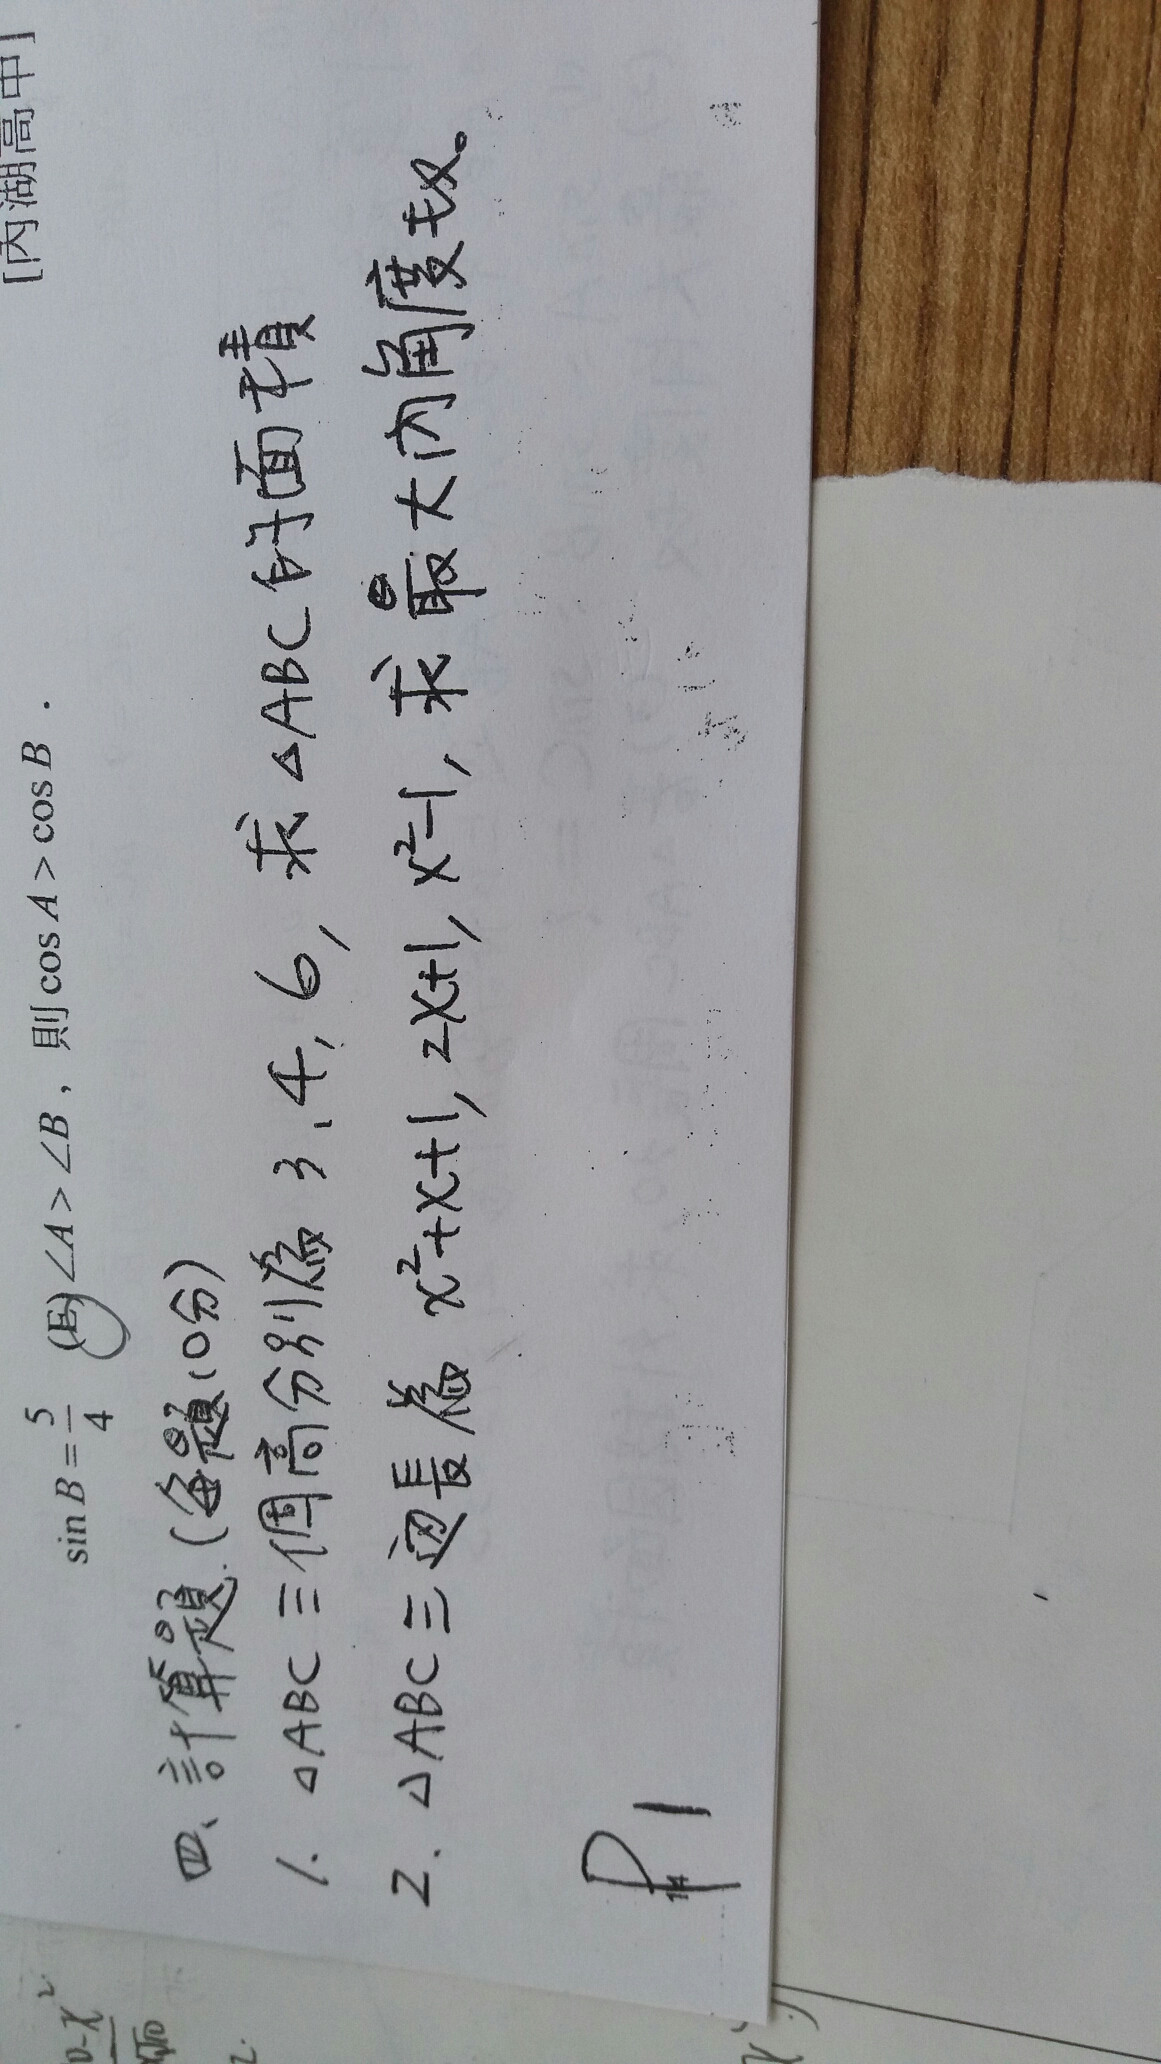 [內湖高中]
sin B = 5/4 (E) ∠A > ∠B，則 cos A > cos B．
四、計算題.(每題10分)
1. △ABC三個高分別為 3、4, 6, 求△ABC的面積
2. △ABC三边長為 x²+x+1, 2x+1, x²-1, 求最大內角度數。
P1